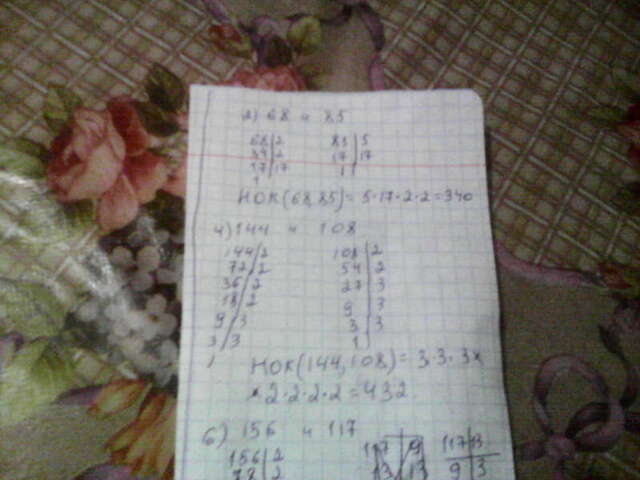 2) 68 и 85
68|2 85|5
34|2 17|17
17|17 1|
1
НОК(68,85) = 5·17·2·2=340
4) 144 и 108
144/2 108|2
72/2 54|2
36/2 27|3
18/2 9|3
9/3 3|3
3/3 1|
1
НОК(144,108) = 3·3·3×
×2·2·2·2=432
6) 156 и 117
156|2 117|13
78|2 9|3